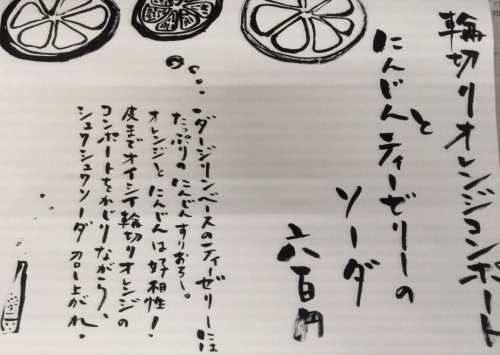 輪切りオレンジコンポート
と
にんじんティーゼリーの
ソーダ
六百円
ダージリンベースのティーゼリーには
たっぷりのにんじんすりおろし。
オレンジとにんじんは好相性！
皮までオイシイ輪切りオレンジの
コンポートをかじりながら、
シュワシュワソーダ召し上がれ。